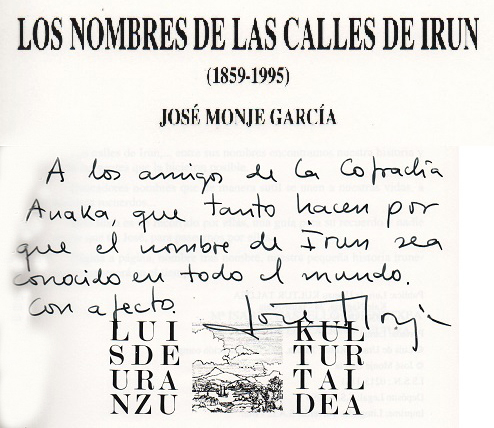 LOS NOMBRES DE LAS CALLES DE IRUN
(1859-1995)
JOSÉ MONJE GARCÍA
A los amigo de la Cofradía
Anaka, que tanto hacen por
que el nombre de Irun sea
conocido en todo el mundo.
Con afecto.
José Monje
LUI
SDE
URA
NZU
KUL
TUR
TAL
DEA